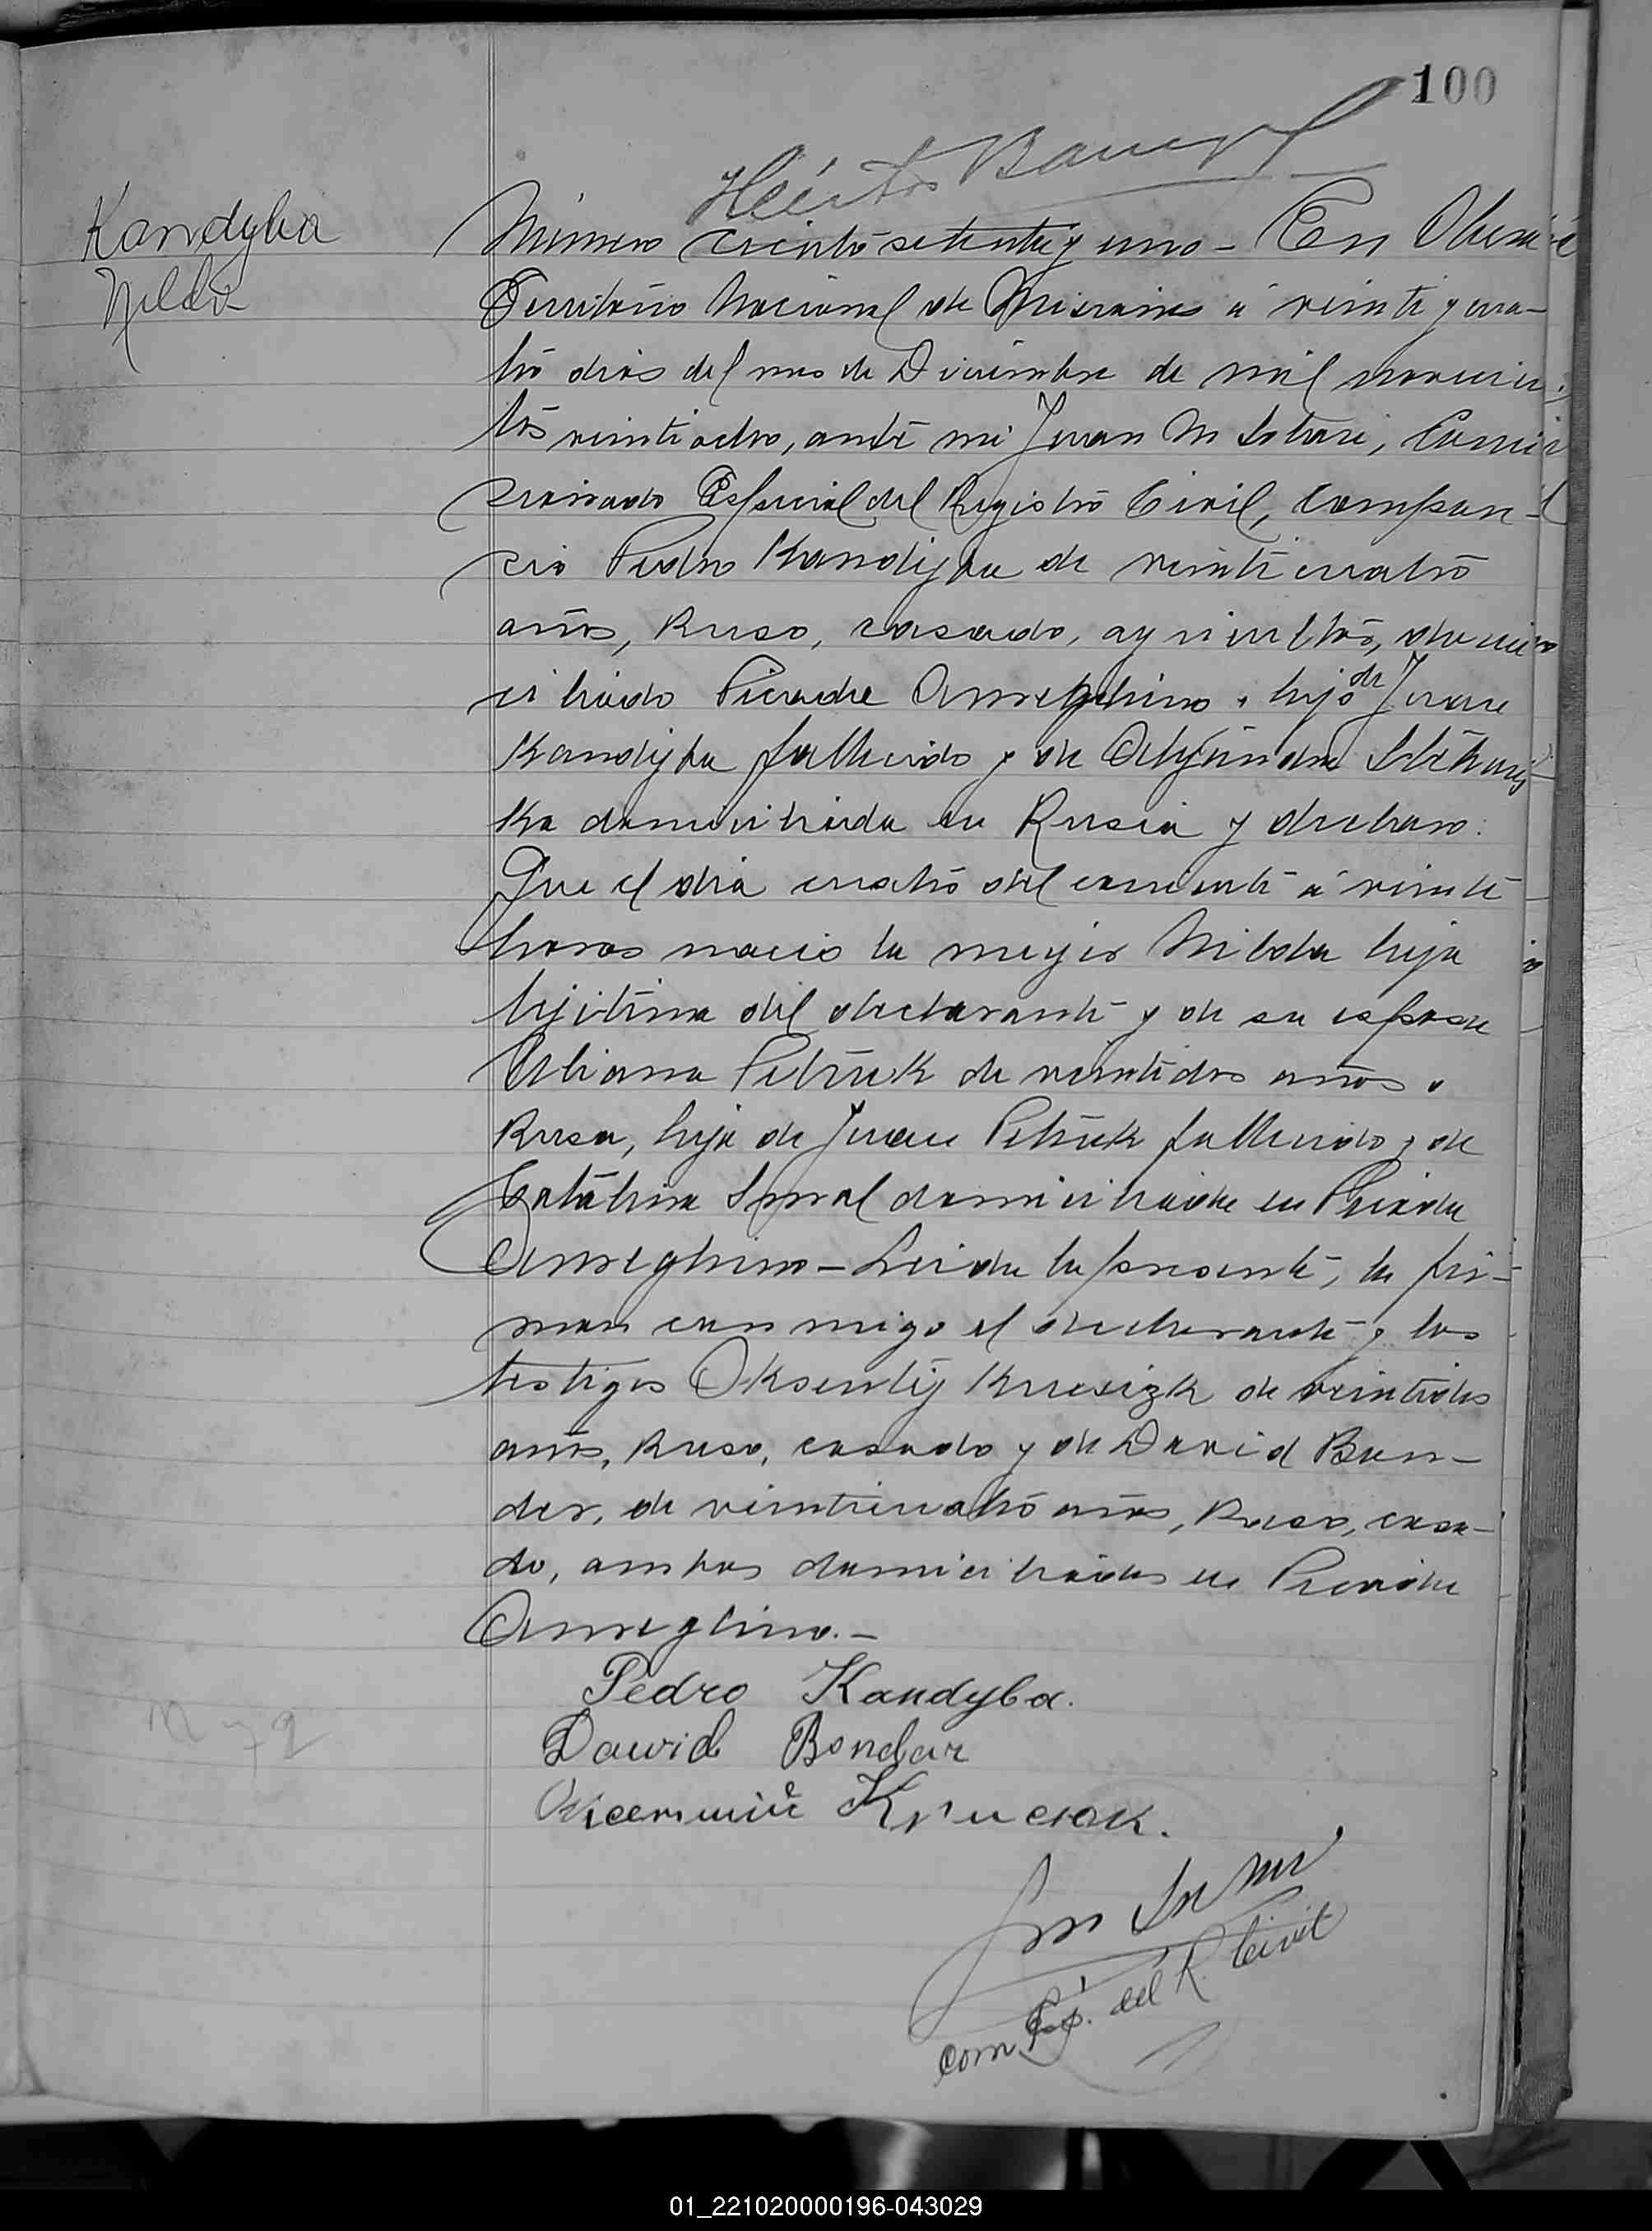 100
Héctor
Kandyba
Nilda
Número ciento setenta y uno - En Oberá
Territorio Nacional de Misiones á veinti y cua-
tro dias del mes de Diciembre de mil novecien-
tos veintiocho, ante mi Juan M Sotari, Comi
sionado Especial del Registro Civil, compare-
cio Pedro Kandijba de veinticuatro
años, Ruso, casado, agricultor, domi
ciliado Picada Ameghino, hijo de Juan
Kandijba fallecido y de
ka domiciliada en Rusia y declaro:
Que el dia cuatro del corriente á veinte
horas nacio la mujer Nilda hija
lejitima del declarante y de su esposa
Uliana Petruk de veintidos años,
Rusa, hija de Juan Petruk fallecido y de
Catalina domiciliada en Picada
Ameghino - Leida la presente, la fir-
man conmigo el declarante y los
testigos Oksentij Krusizk de veintidos
años, Ruso, casado y de David Bon-
der, de veinticuatro años, Ruso, casa-
do, ambos domiciliados en Picada
Ameghino.-
Pedro Kandyba.
Dawid Bondar
Крисюк.
Com Esp. del R. Civil
01_221020000196-043029